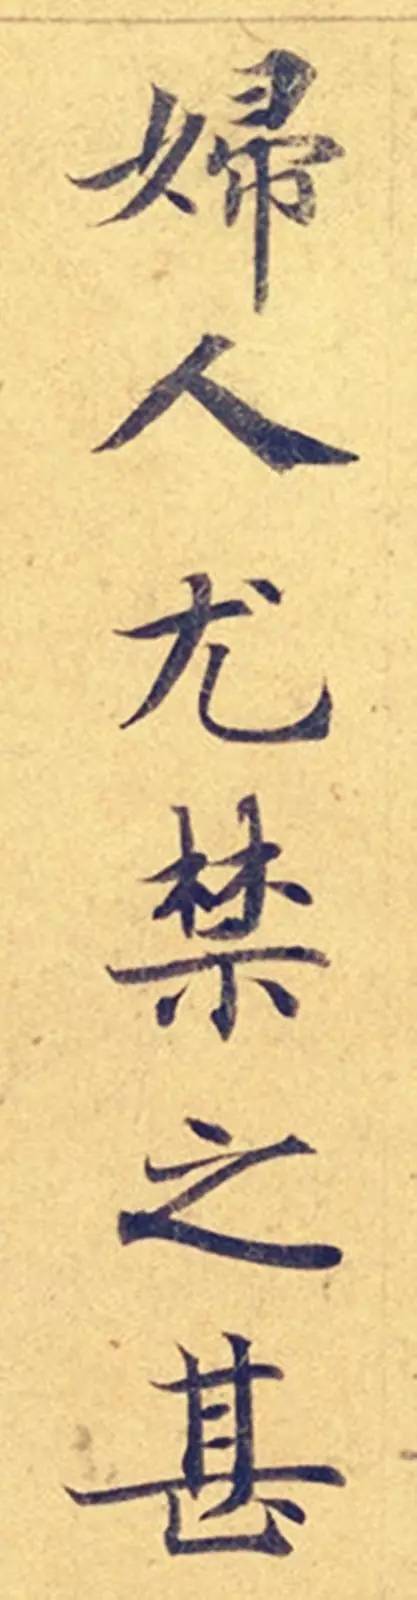 婦人尤禁之甚